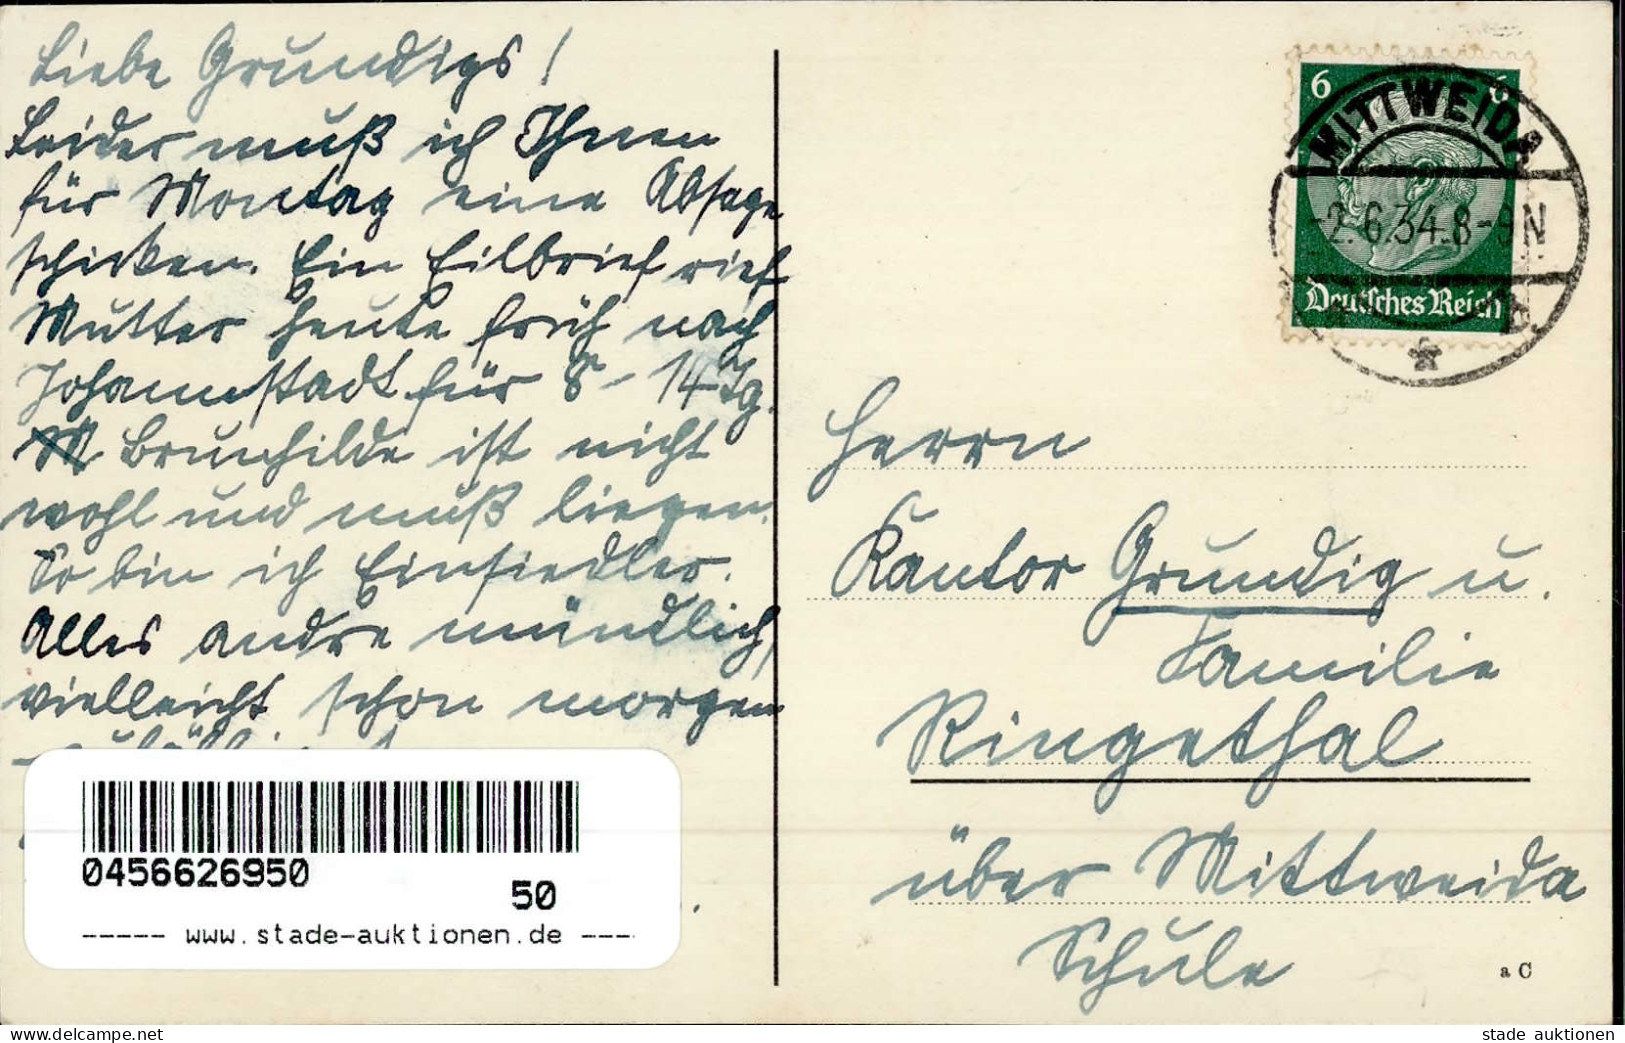 Liebe Grundigs!
Leider muß ich Ihnen
für Montag eine Absage
schicken. Ein Eilbrief rief
Mutter heute früh nach
Johannstadt für 8-14 Tg.
Brunhilde ist nicht
wohl und muß liegen.
So bin ich Einsiedler.
Alles andre mündlich,
vielleicht schon morgen
0456626950
50
----- www.stade-auktionen.de ---
6 6
MITTWEIDA
-2.6.34.8-9N
Deutsches Reich
Herrn
Kantor Grundig u.
Familie
Ringethal
über Mittweida
Schule
a C
www.delcampe.net
stade auktionen